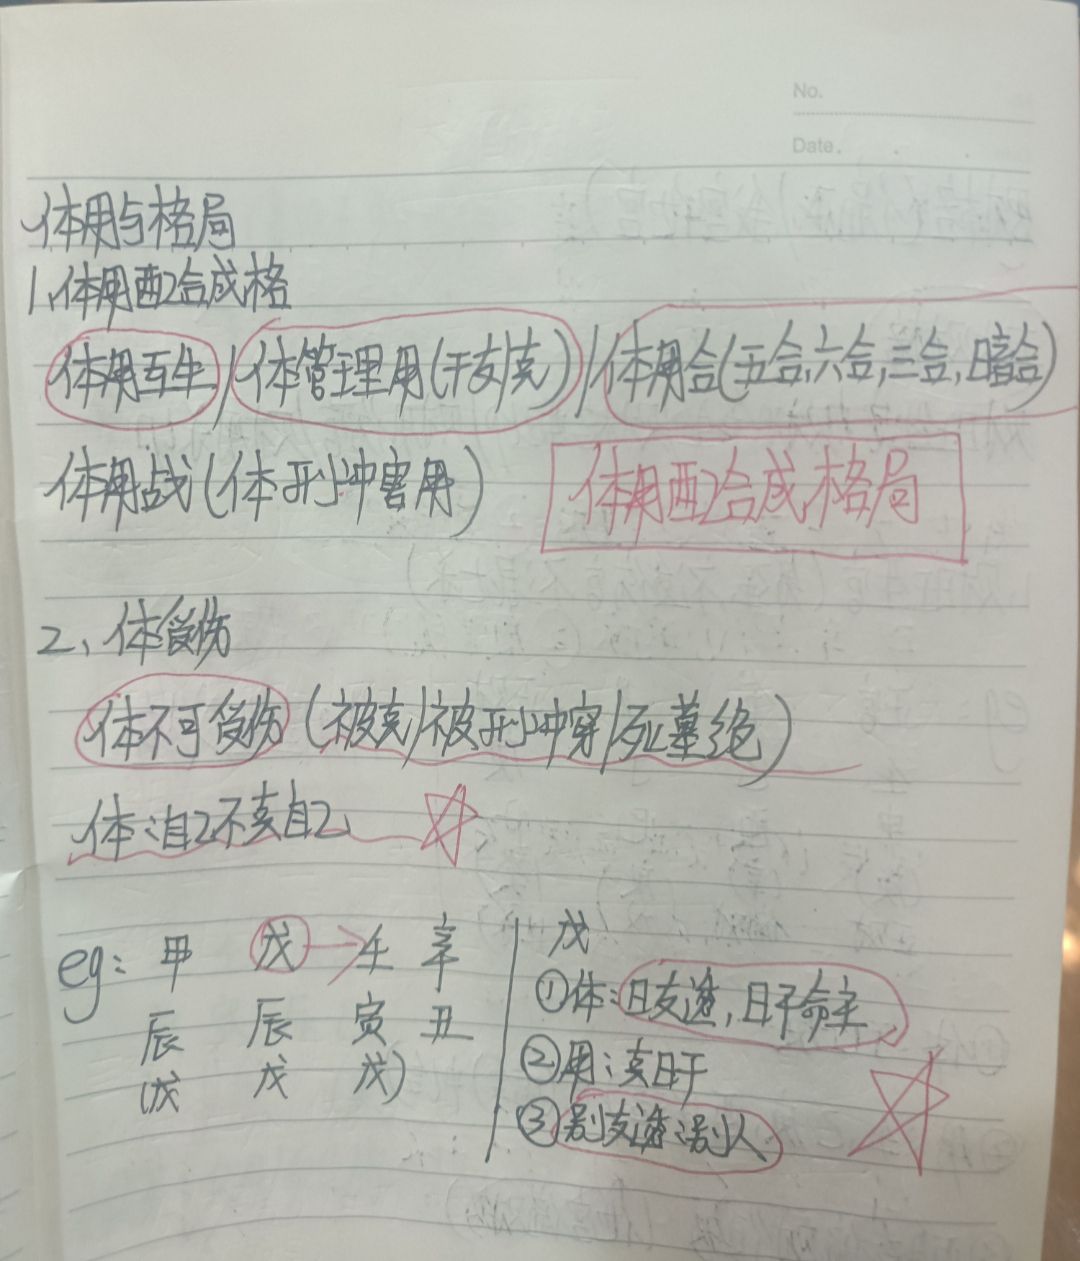 No.
Date.
体用与格局
1、体用配合成格
体用互生/体管理用(干支克)/体用合(五合,六合,三合,暗合)
体用战(体刑冲害用) 体用配合成格局
2、体受伤
体不可受伤(被克/被刑冲穿/死墓绝)
体:自己不克自己
eg: 甲 戊→壬 辛
辰 辰 寅 丑
(戊 戊 戊)
戊
①体:日支透,日干命主
②用:克日干
③别支透:别人